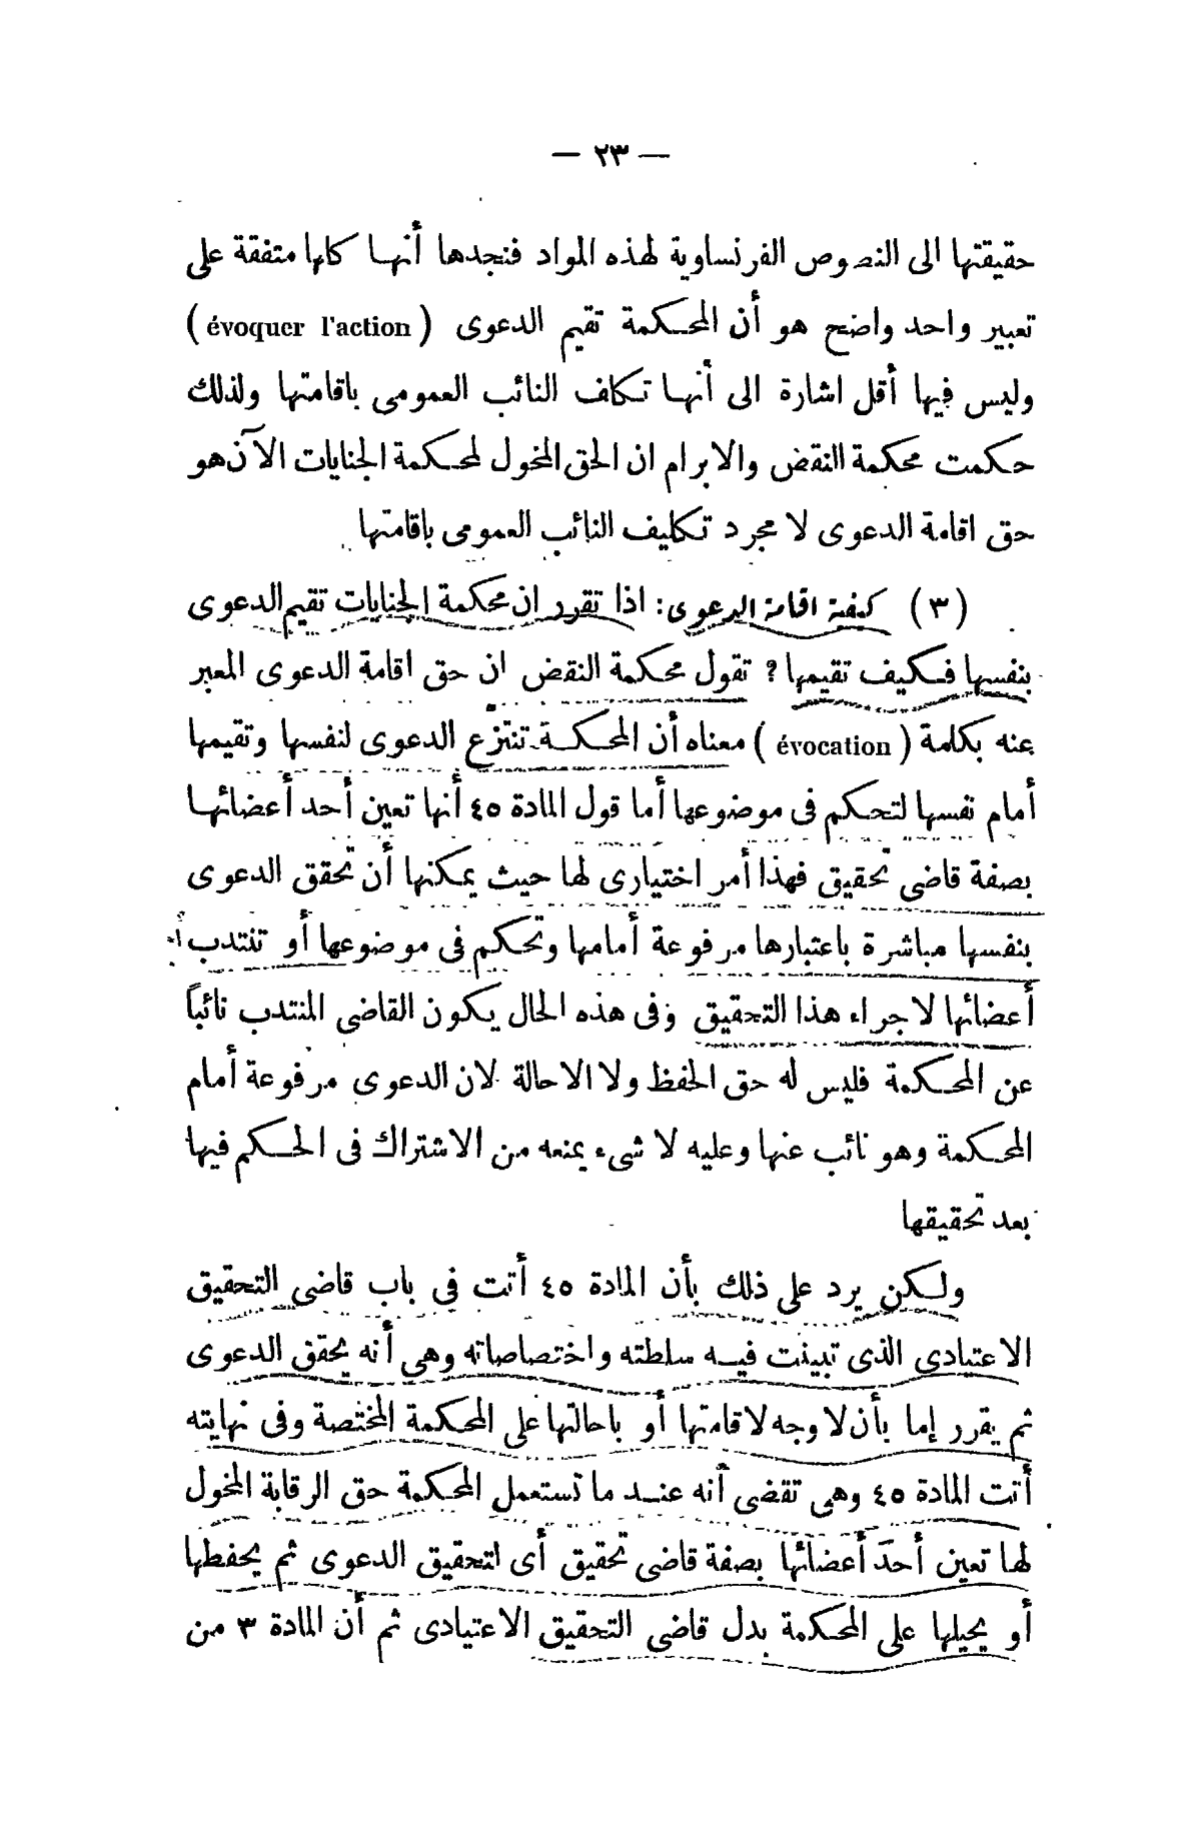 — ٢٣ —
حقيقتها الى النصوص الفرنساوية لهذه المواد فنجدها أنها كلها متفقة على
تعبير واحد واضح هو أن المحكمة تقيم الدعوى ( évoquer l'action )
وليس فيها أقل اشارة الى أنها تكلف النائب العمومى باقامتها ولذلك
حكمت محكمة النقض والابرام ان الحق المخول لمحكمة الجنايات الآن هو
حق اقامة الدعوى لا مجرد تكليف النائب العمومى باقامتها
( ٣ ) كيفية اقامة الدعوى : اذا تقرر ان محكمة الجنايات تقيم الدعوى
بنفسها فكيف تقيمها ؟ تقول محكمة النقض ان حق اقامة الدعوى المعبر
عنه بكلمة ( évocation ) معناه أن المحكمة تنتزع الدعوى لنفسها وتقيمها
أمام نفسها لتحكم فى موضوعها أما قول المادة ٤٥ أنها تعين أحد أعضائها
بصفة قاضى تحقيق فهذا أمر اختيارى لها حيث يمكنها أن تحقق الدعوى
بنفسها مباشرة باعتبارها مرفوعة أمامها وتحكم فى موضوعها أو تنتدب
أعضائها لاجراء هذا التحقيق وفى هذه الحال يكون القاضى المنتدب نائباً
عن المحكمة فليس له حق الحفظ ولا الاحالة لان الدعوى مرفوعة أمام
المحكمة وهو نائب عنها وعليه لا شىء يمنعه من الاشتراك فى الحكم فيها
بعد تحقيقها
ولكن يرد على ذلك بأن المادة ٤٥ أتت فى باب قاضى التحقيق
الاعتيادى الذى تبينت فيه سلطته واختصاصاته وهى أنه يحقق الدعوى
ثم يقرر إما بأن لا وجه لاقامتها أو باحالتها على المحكمة المختصة وفى نهايته
أتت المادة ٤٥ وهى تقضى أنه عند ما تستعمل المحكمة حق الرقابة المخول
لها تعين أحدَ أعضائها بصفة قاضى تحقيق أى لتحقيق الدعوى ثم يحفظها
أو يحيلها على المحكمة بدل قاضى التحقيق الاعتيادى ثم أن المادة ٣ من